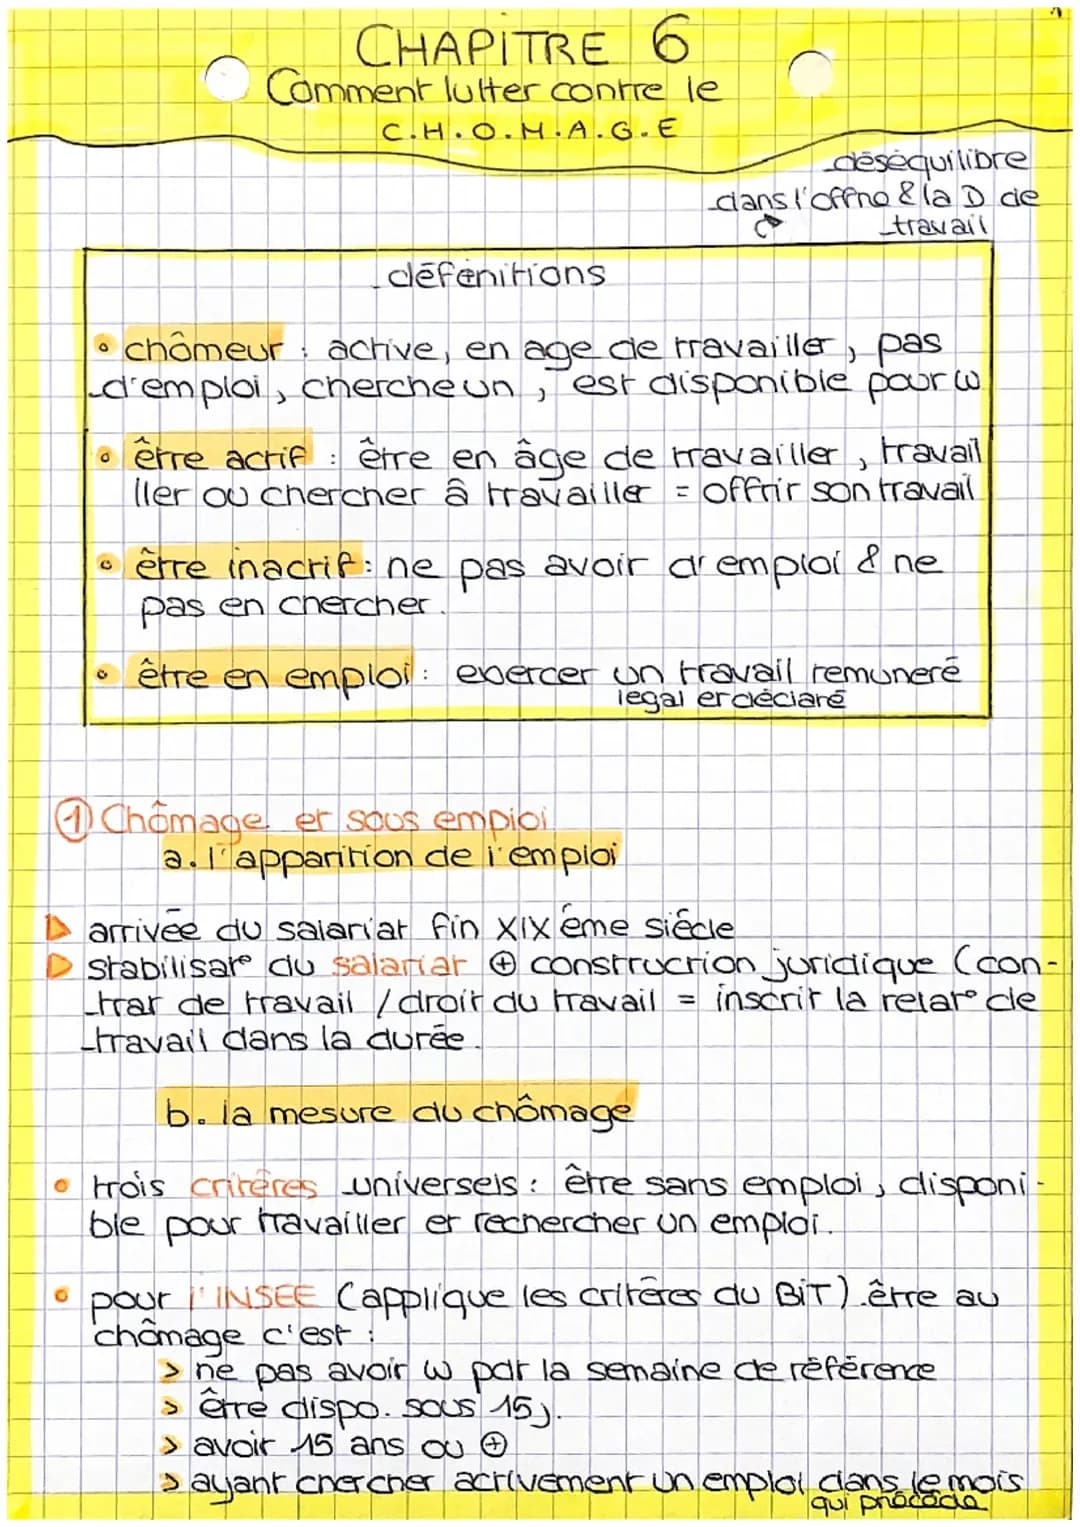 1
CHAPITRE 6
Comment lutter contre le
C.H.O.M.A.G.E
déséquilibre
dans l'offre & la D de
travail
défenitions
• chômeur : active, en age de travailler, pas
d'emploi, cherche un, est disponible pour w
• être actif : être en âge de travailler, travail
ller ou chercher à travailler = offrir son travail
• être inactif : ne pas avoir d'emploi & ne
pas en chercher.
• être en emploi : exercer un travail remuneré
legal et déclaré
① Chômage et sous emploi
a. l'apparition de l'emploi
▷ arrivée du salariat fin XIX ème siécle
▷ stabilisat° du salariat ⊕ construction juridique (con-
trat de travail / droit du travail = inscrit la relat° de
travail dans la durée.
b. la mesure du chômage
• trois critères universels : être sans emploi, disponi-
ble pour travailler et rechercher un emploi.
• pour l'INSEE (applique les critères du BiT) être au
chômage c'est :
> ne pas avoir w par la semaine de référence
> être dispo. sous 15j.
> avoir 15 ans ou ⊕
> ayant chercher activement un emploi dans le mois
qui précède